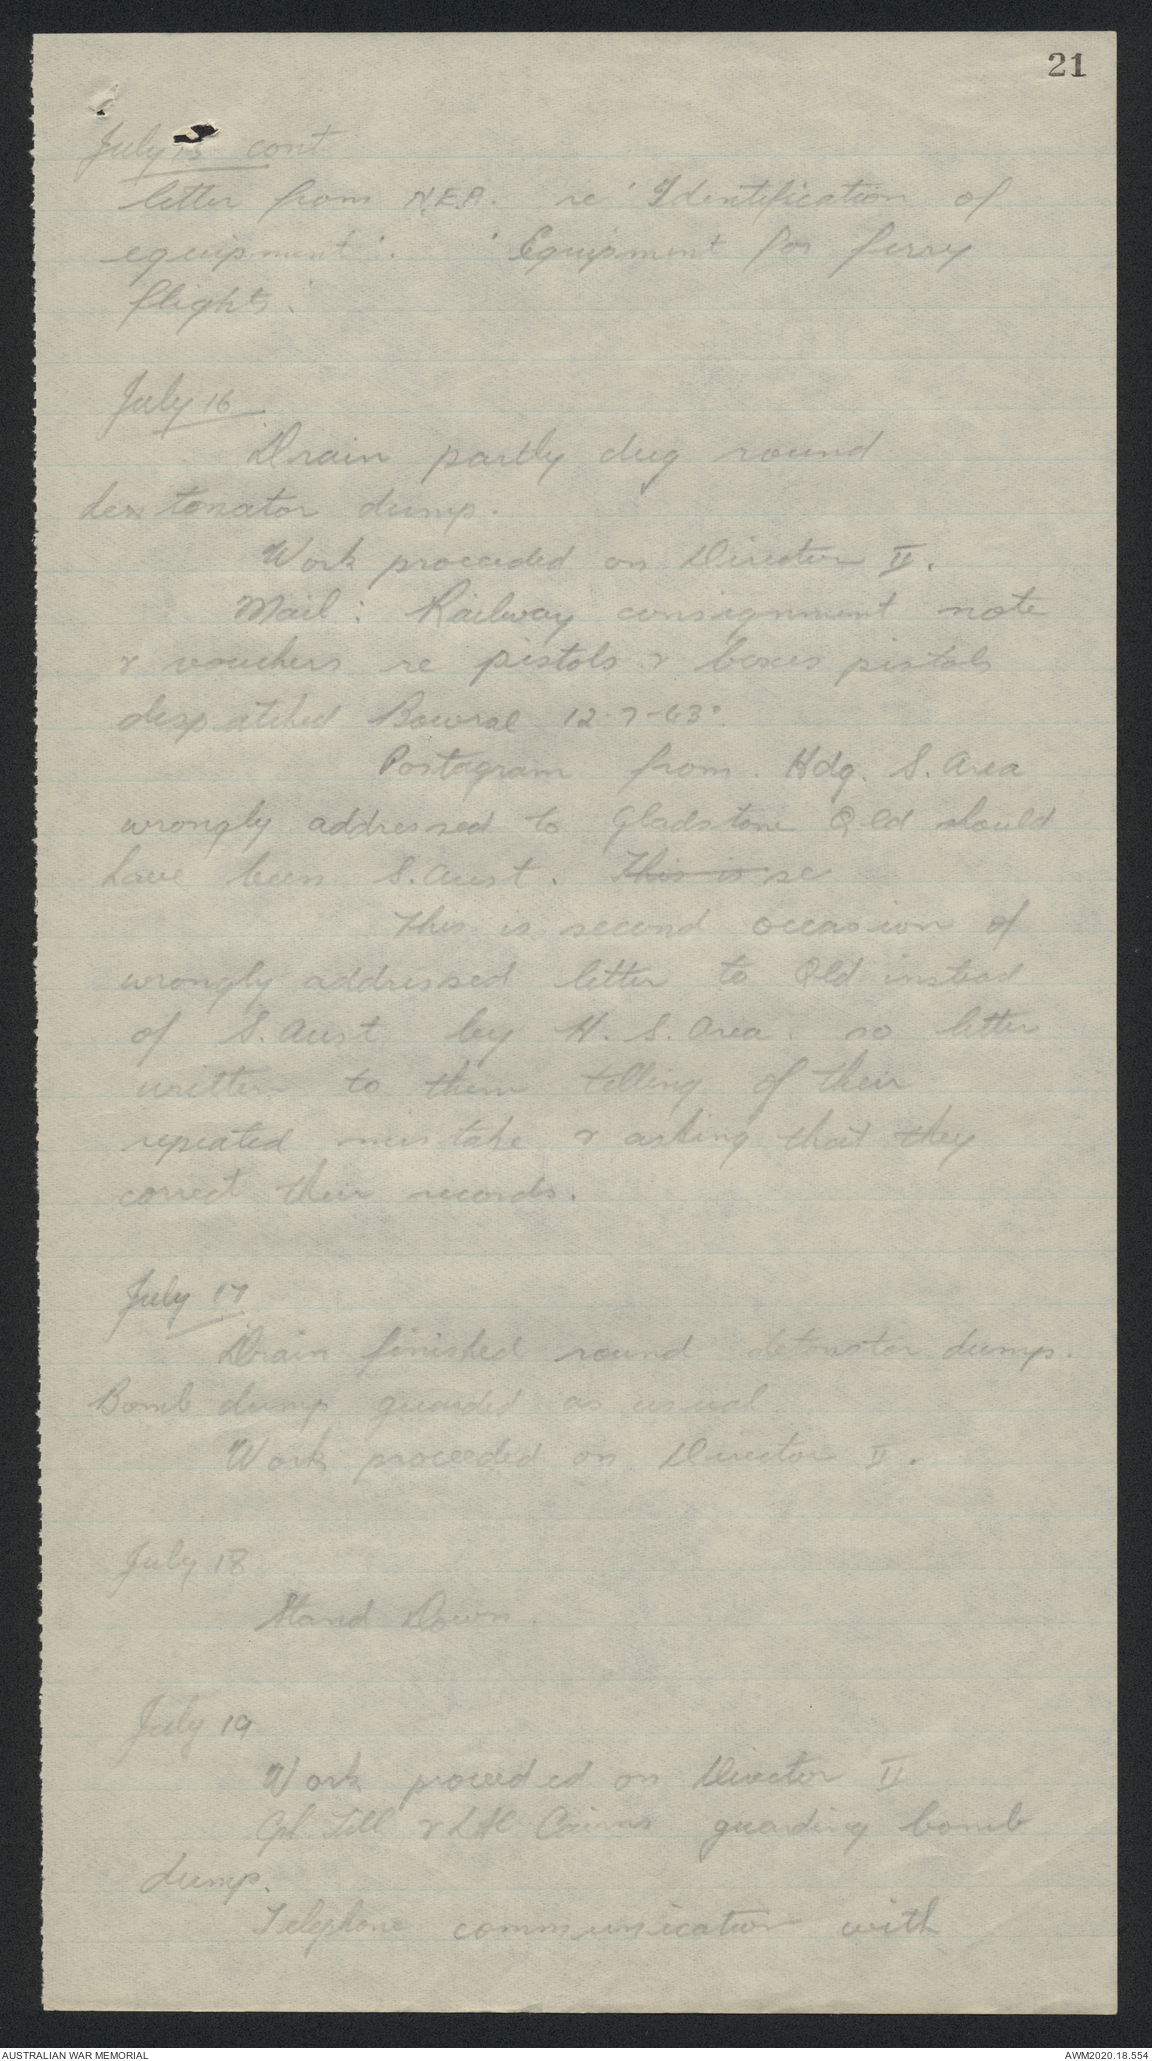 21
July 15 cont
letter from N.E.A. re 'Identification of
equipment'. 'Equipment for ferry
flights.'
July 16
Drain partly dug round
detonator dump.
Work proceeded on Director II.
Mail: Railway consignment note
& vouchers re pistols & boxes pistols
despatched Bowral 12-7-43.
Postagram from Hdq. S. Area
wrongly addressed to Gladstone Qld should
have been S. Aust. This is se
This is second occasion of
wrongly addressed letter to Qld instead
of S. Aust by H. S. Area. so letter
written to them telling of their
repeated mistake & asking that they
correct their records.
July 17
Drain finished round detonator dump.
Bomb dump guarded as usual.
Work proceeded on Director II.
July 18
Stand Down.
July 19
Work proceeded on Director II
Cpl & guarding bomb
dump.
Telephone communication with
AUSTRALIAN WAR MEMORIAL
AWM2020.18.554